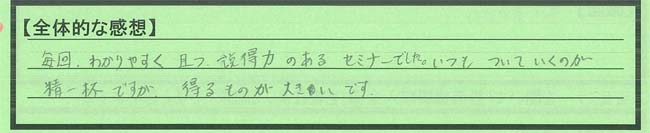 【全体的な感想】
毎回、わかりやすく 且つ 説得力のある セミナーでした。いつも ついていくのが
精一杯ですが、得るものが大きいです.